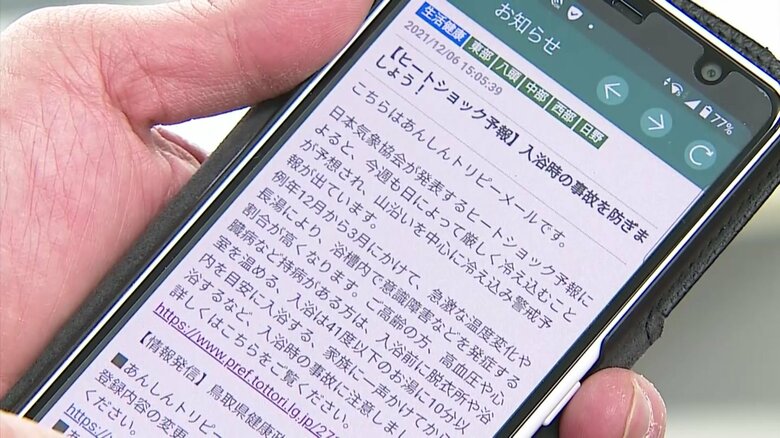 お知らせ
77%
生活健康 東部 八頭 中部 西部 日野
2021/12/06 15:05:39
【ヒートショック予報】入浴時の事故を防ぎま
しょう！
こちらはあんしんトリピーメールです。
日本気象協会が発表するヒートショック予報に
よると、今週も日によって厳しく冷え込むこと
が予想され、山沿いを中心に冷え込み警戒予
報が出ています。
例年12月から3月にかけて、急激な温度変化や
長湯により、浴槽内で意識障害などを発症する
割合が高くなります。ご高齢の方、高血圧や心
臓病など持病がある方は、入浴前に脱衣所や浴
室を温める、入浴は41度以下のお湯に10分以
内を目安に入浴する、家族に一声かけてから
浴するなど、入浴時の事故に注意しま
詳しくはこちらをご覧ください。
https://www.pref.tottori.lg.jp/27
【情報発信】鳥取県健康政
■あんしんトリピー
登録内容の変更
ください。
https://